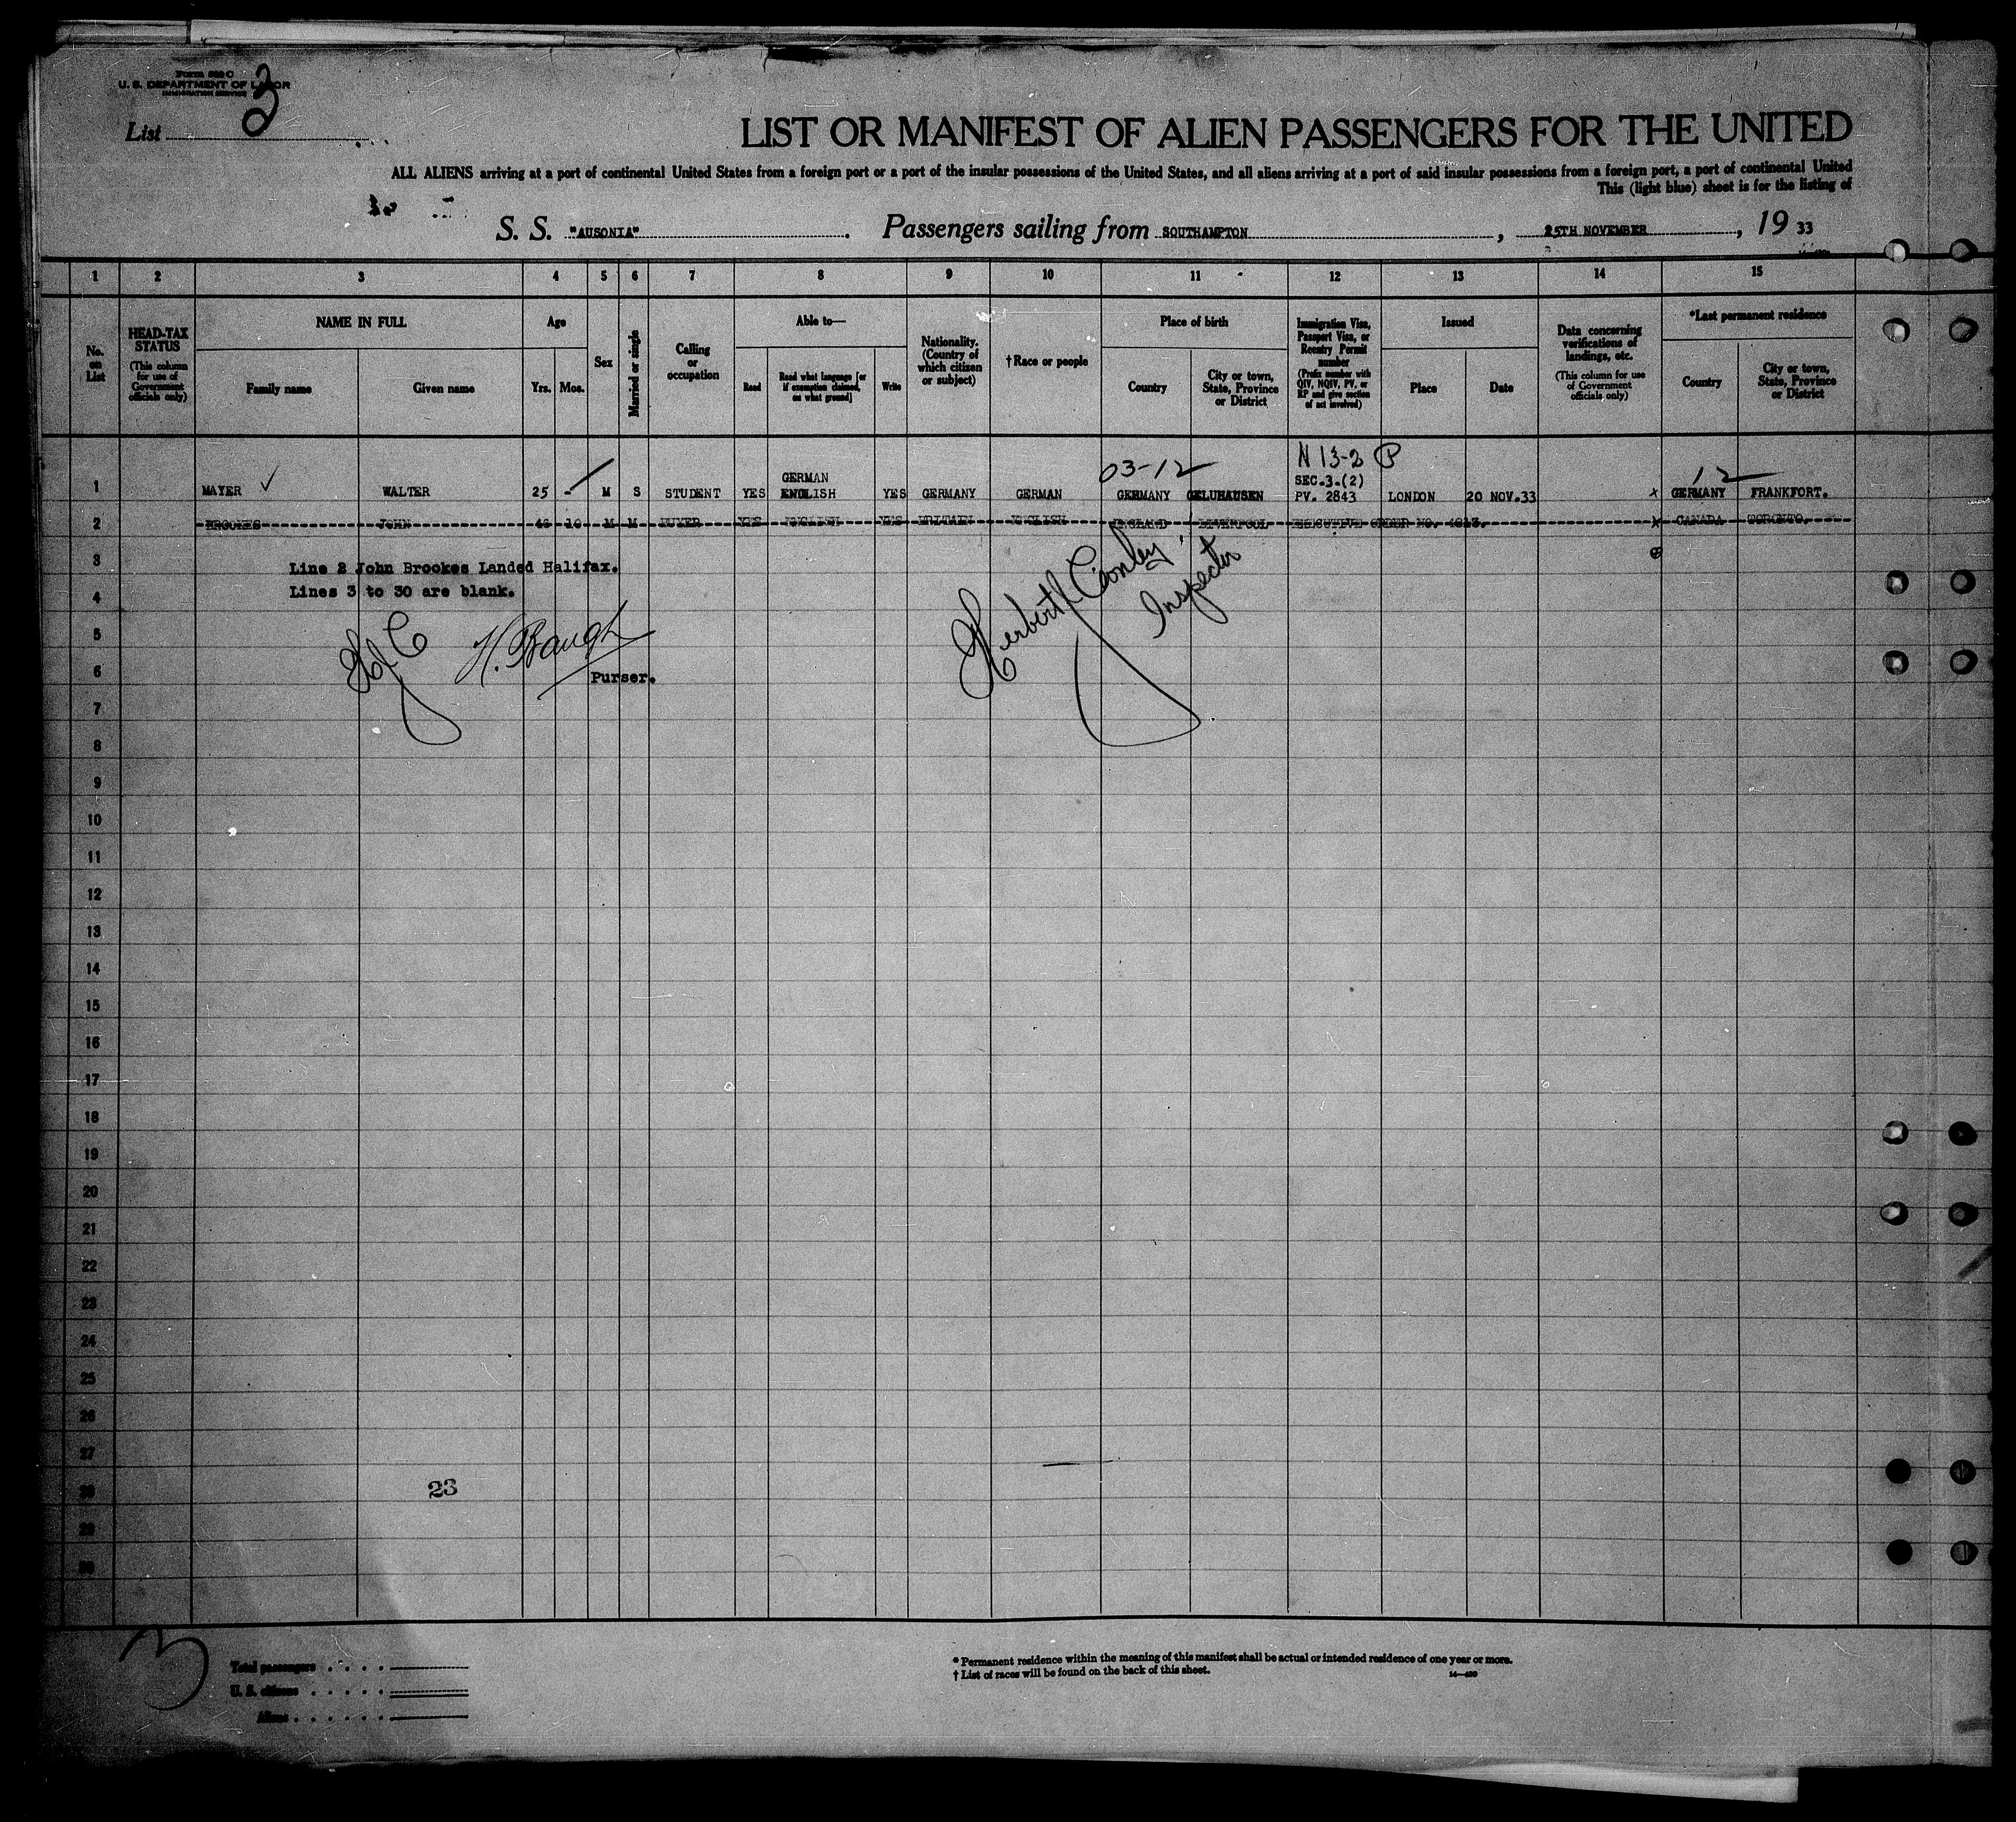 Form 500 C
U. S. DEPARTMENT OF LABOR
IMMIGRATION SERVICE
List 3
LIST OR MANIFEST OF ALIEN PASSENGERS FOR THE UNITED
ALL ALIENS arriving at a port of continental United States from a foreign port or a port of the insular possessions of the United States, and all aliens arriving at a port of said insular possessions from a foreign port, a port of continental United
This (light blue) sheet is for the listing of
S. S. "AUSONIA". Passengers sailing from SOUTHAMPTON, 25TH NOVEMBER, 19 33
1 2 3 4 5 6 7 8 9 10 11 12 13 14 15
No. on List
HEAD-TAX STATUS
(This column for use of Government officials only)
NAME IN FULL
Family name Given name
Age
Yrs. Mos.
Sex
Married or single
Calling or occupation
Able to—
Read Read what language [or if exemption claimed, on what ground] Write
Nationality. (Country of which citizen or subject)
†Race or people
Place of birth
Country City or town, State, Province or District
Immigration Visa, Passport Visa, or Reentry Permit number
(Prefix number with QIV, NQIV, PV, or RP and give section of act involved)
Issued
Place Date
Data concerning verifications of landings, etc.
(This column for use of Government officials only)
*Last permanent residence
Country City or town, State, Province or District
03-12 N 13-2 P 12
GERMAN SEC.3.(2)
1 MAYER ✓ WALTER 25 - M S STUDENT YES ENGLISH YES GERMANY GERMAN GERMANY GELUHAUSEN PV. 2843 LONDON 20 NOV.33 x GERMANY FRANKFORT.
2 BROOKES JOHN 46 10 M M BUYER YES ENGLISH YES BRITAIN ENGLISH ENGLAND LIVERPOOL EXECUTIVE ORDER NO. 4813. x CANADA TORONTO.
3 Line 2 John Brookes Landed Halifax.
4 Lines 3 to 30 are blank.
Herbert Conley
Inspector
5 HJC H. Baugh
6 Purser.
7
8
9
10
11
12
13
14
15
16
17
18
19
20
21
22
23
24
25
26
27
28 23
29
30
3
Total passengers
U. S. citizens
Aliens
* Permanent residence within the meaning of this manifest shall be actual or intended residence of one year or more.
† List of races will be found on the back of this sheet.